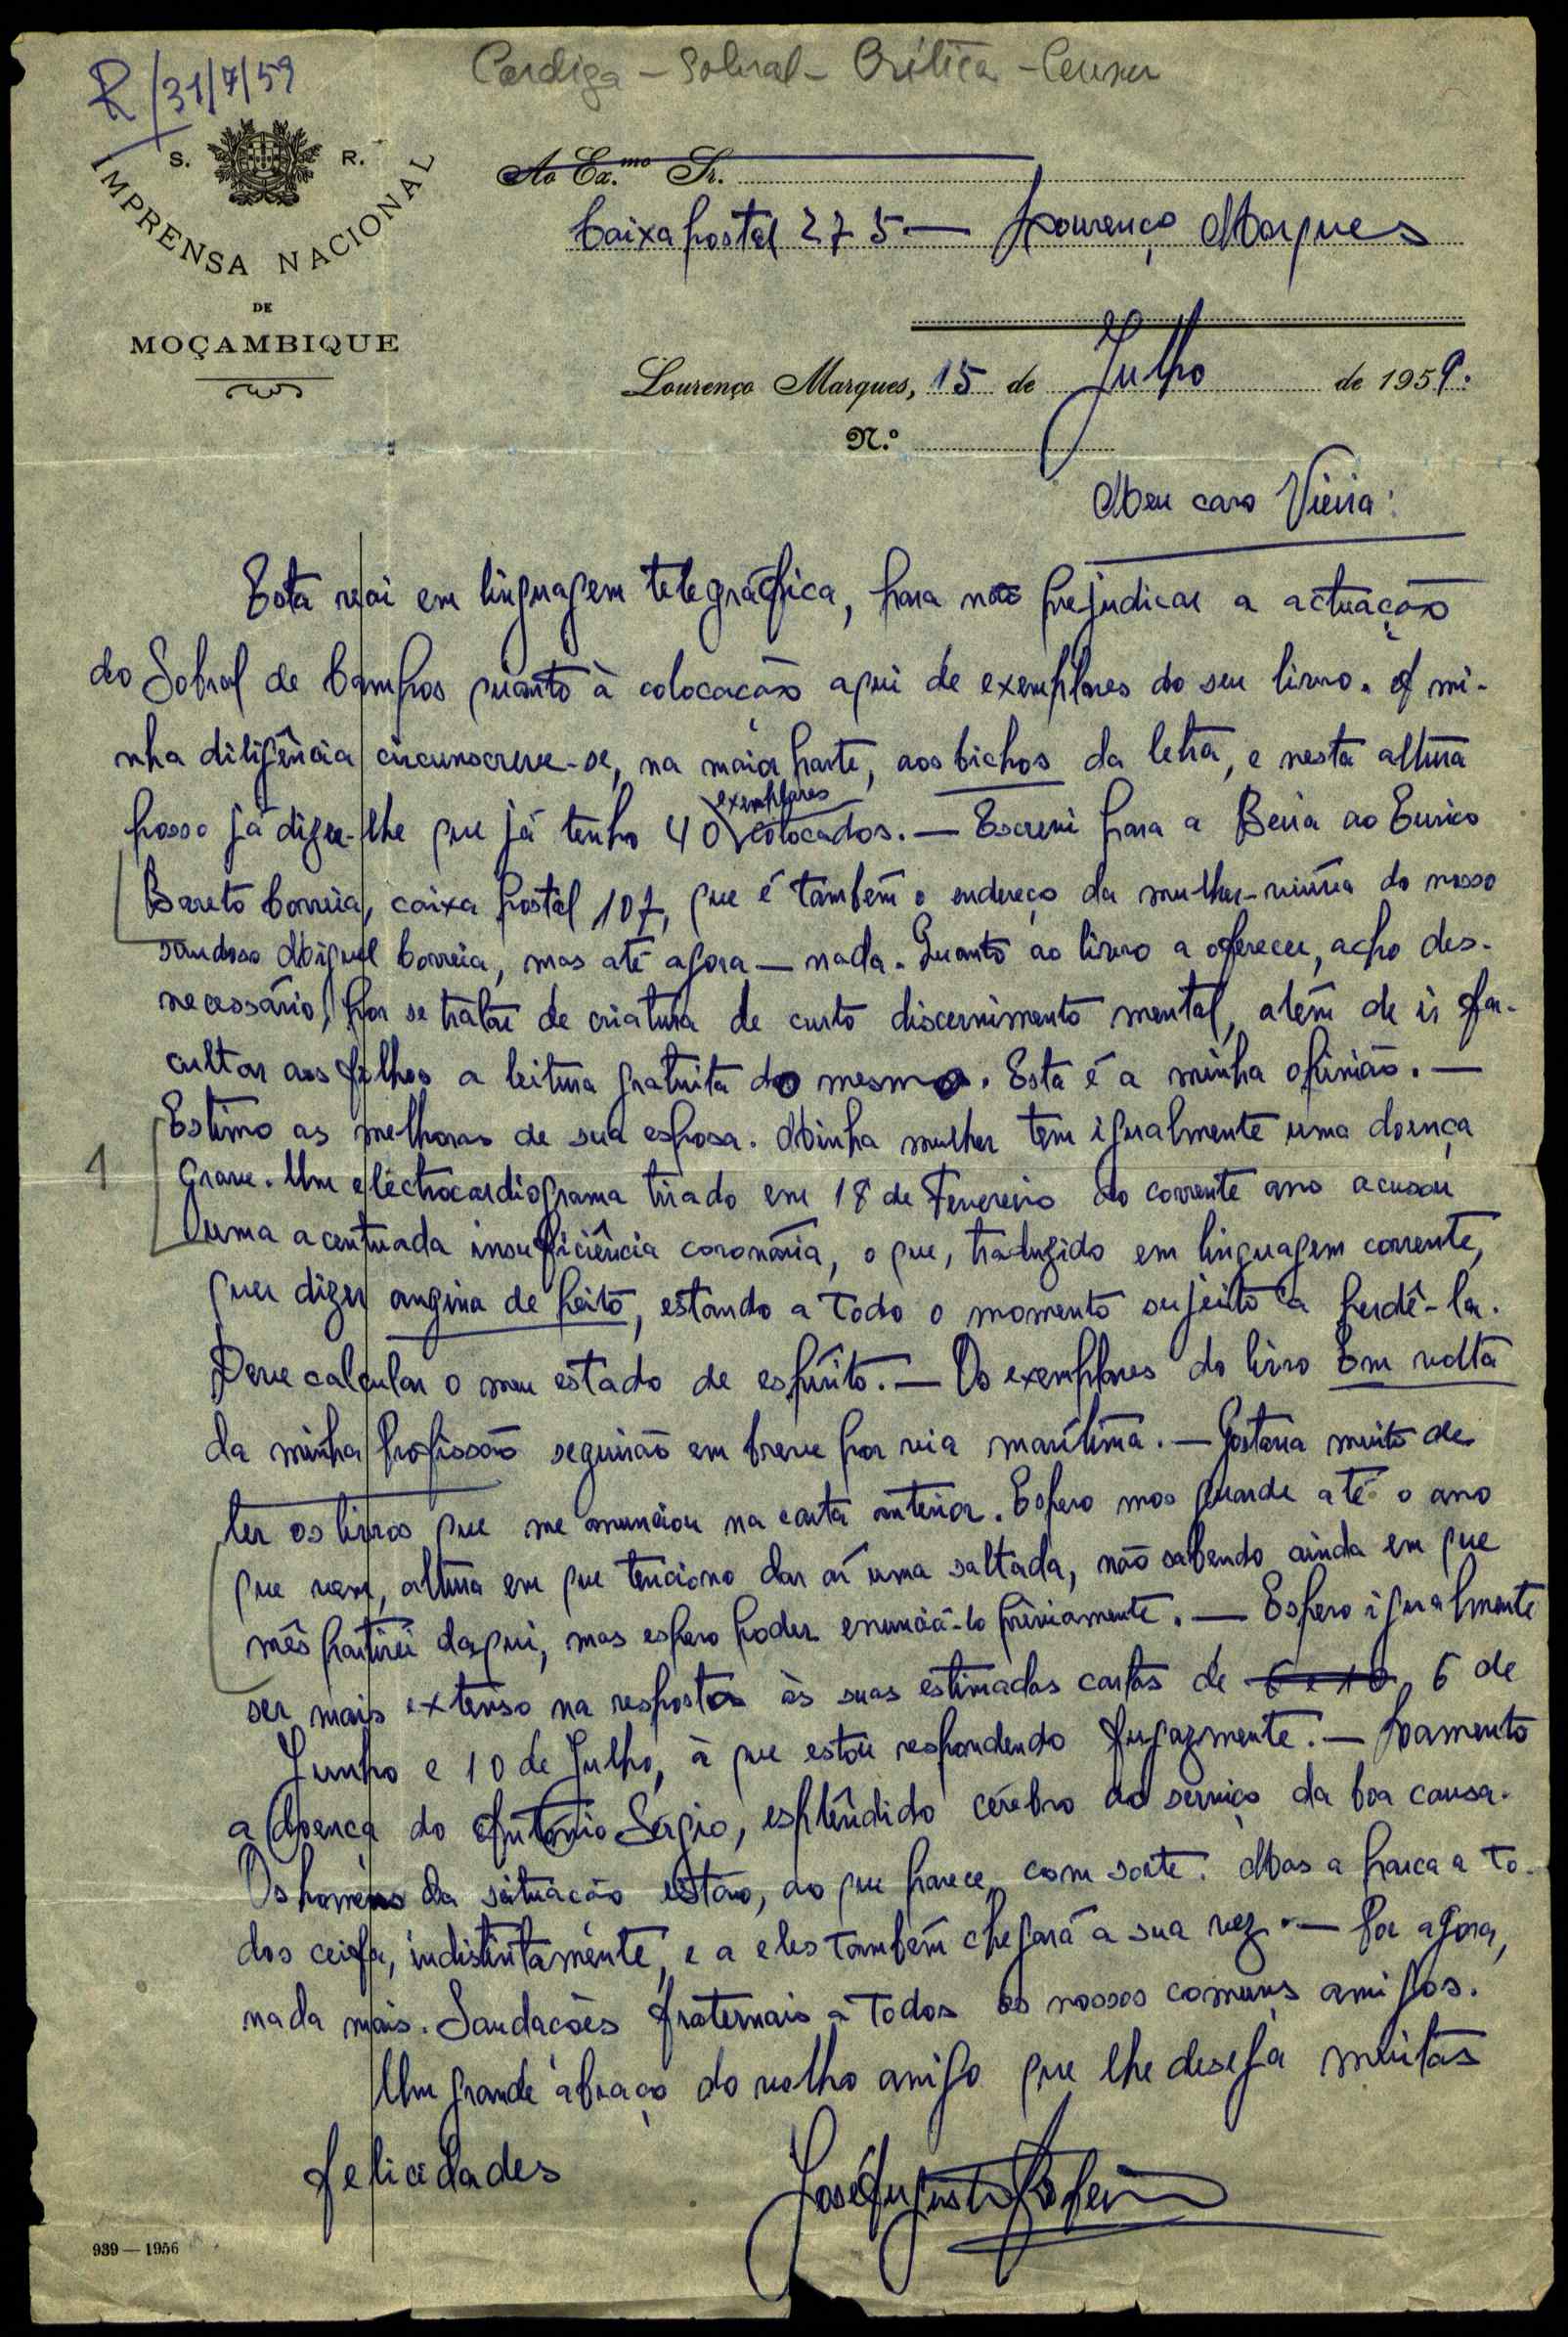 R/31/7/59
Cardiga - Sobral - Crítica - Censur
S. R.
IMPRENSA NACIONAL
DE
MOÇAMBIQUE
Ao Ex.mo Sr.
Caixa postal 275 — Lourenço Marques
Lourenço Marques, 15 de Julho de 1959.
N.º
Meu caro Vieira:
Esta vai em linguagem telegráfica, para não prejudicar a actuação
do Sobral de Campos quanto à colocação aqui de exemplares do seu livro. A mi-
nha diligência circunscreve-se, na maior parte, aos bichos da letra, e nesta altura
exemplares
posso já dizer-lhe que já tenho 40 colocados. — Escrevi para a Beira ao Eurico
Barreto Correia, caixa postal 107, que é também o endereço da mulher-viúva do nosso
saudoso Miguel Correia, mas até agora — nada. Quanto ao livro a oferecer, acho des-
necessário, por se tratar de criatura de curto discernimento mental, além de ir fa-
cultar aos filhos a leitura gratuita do mesmo. Esta é a minha opinião. —
Estimo as melhoras de sua esposa. Minha mulher tem igualmente uma doença
1
grave. Um eléctrocardiograma tirado em 18 de Fevereiro do corrente ano acusou
uma acentuada insuficiência coronária, o que, traduzido em linguagem corrente,
quer dizer angina de peito, estando a todo o momento sujeito a perdê-la.
Deve calcular o meu estado de espírito. — Os exemplares do livro Em volta
da minha profissão seguirão em breve por via marítima. — Gostaria muito de
ter os livros que me anunciou na carta anterior. Espero mos guarde até o ano
que vem, altura em que tenciono dar aí uma saltada, não sabendo ainda em que
mês partirei daqui, mas espero poder enunciá-lo prèviamente. — Espero igualmente
ser mais extenso na resposta às suas estimadas cartas de 6 e 10, 6 de
Junho e 10 de Julho, à que estou respondendo fugazmente. — Lamento
a doença do António Sérgio, esplêndido cérebro ao serviço da boa causa.
Os homens da situação estão, ao que parece, com sorte. Mas a parca a to-
dos ceifa, indistintamente, e a eles também chegará a sua vez. — Por agora,
nada mais. Saudações fraternais a todos os nossos comuns amigos.
Um grande abraço do velho amigo que lhe deseja muitas
felicidades
José Augusto
939 — 1956